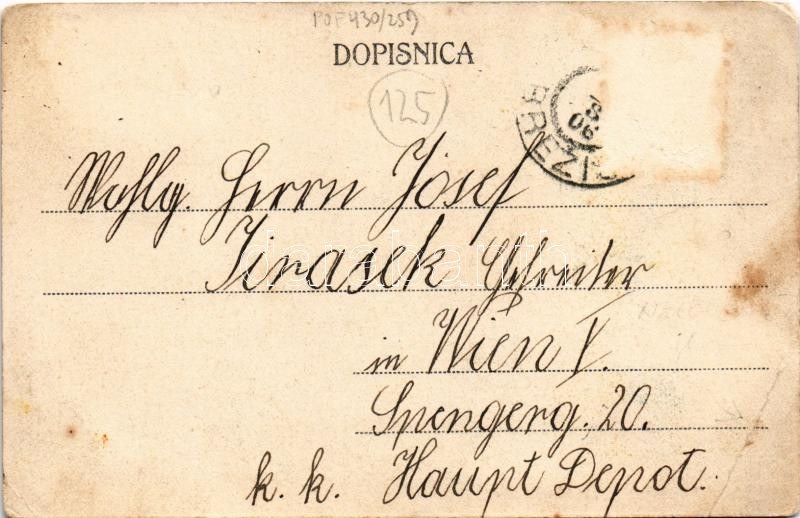 POF430/259
DOPISNICA
125
BREŽI
06
Wohlg. Herrn Josef
Jirasek Gefreiter
in Wien V.
Spengerg. 20.
k. k. Haupt Depot.